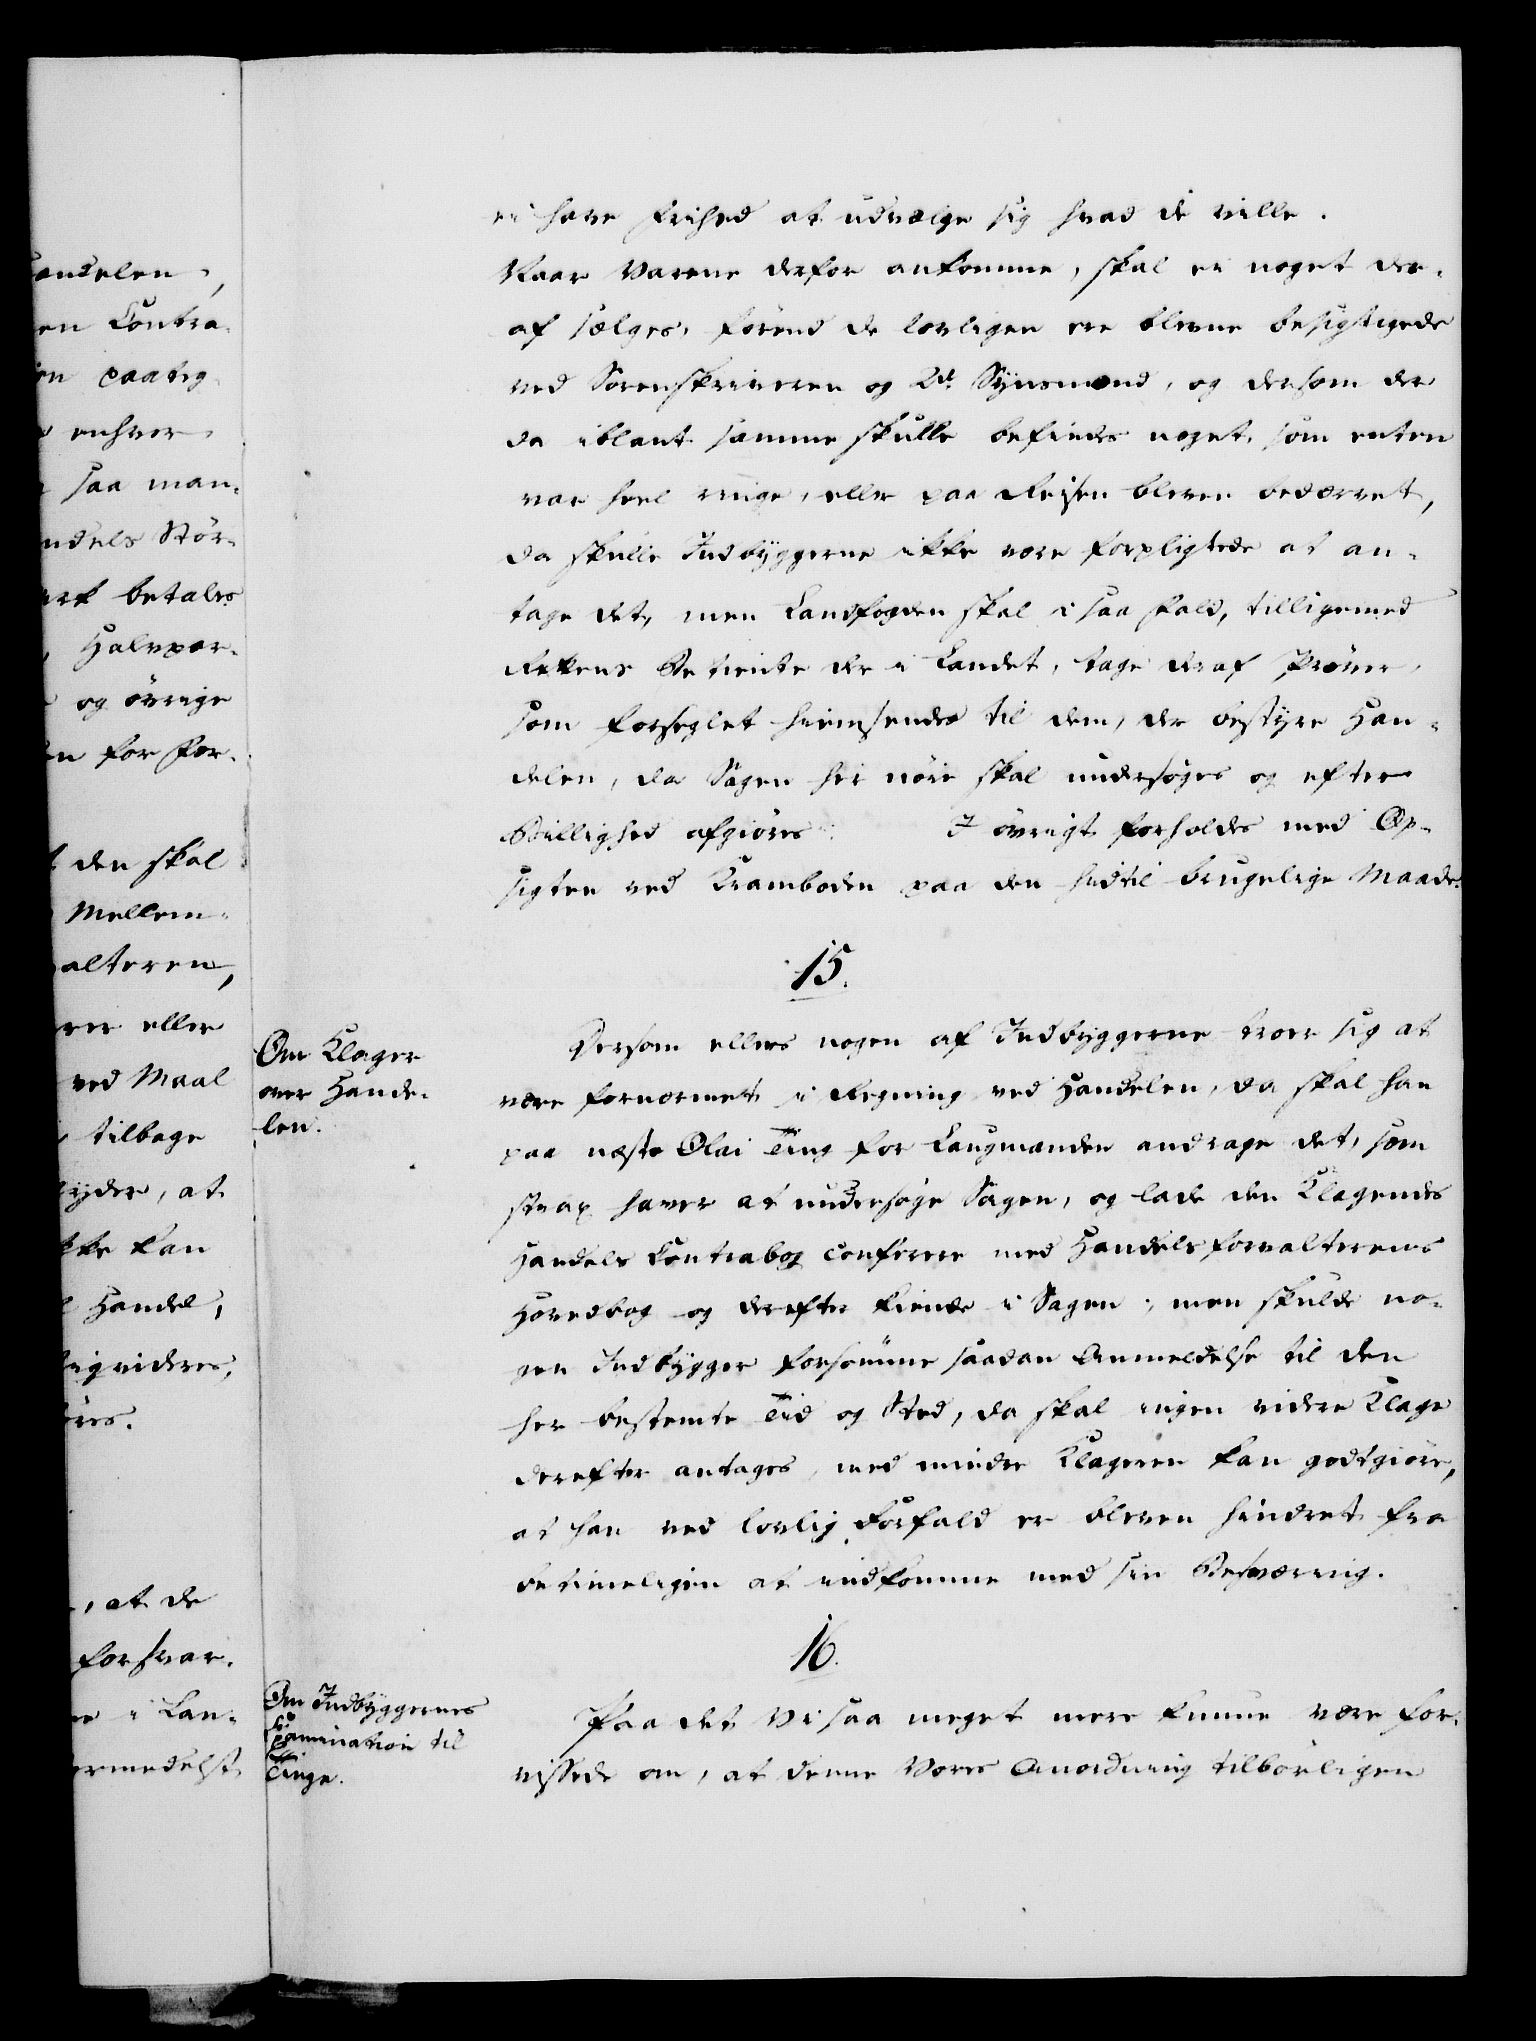 andelen,
en Contra-
on paateg-
enhver
saa man-
ndels Stör-
betales
Halvpar-
og övrige
for For-
den skal
Mellem-
alteren,
eller
ved Maal
tilbage
yder, at
ikke kan
Handel,
ligvideres,
, at de
forsvar-
i Lan-
ermedelst
ei have Frihed at udvælge sig hvad de ville.
Naar Varene derfor ankomme, skal ei noget der-
af sælges, förend de lovligen ere blevne besigtigede
ved Sorenskriveren og 2de Synsmænd, og dersom der
da iblant samme skulle befindes noget, som enten
var heel ringe, eller paa Reisen bleven bedærvet,
da skulle Indbyggerne ikke være forpligtede at an-
tage det, men Landfogden skal i saa Fald, tilligemed
Rettens Betiente der i Landet, tage deraf Pröver,
som forseglet hiemsendes til dem, der bestyre Han-
delen, da Sagen her nöie skal undersöges og efter
Billighed afgiöres. I övrigt forholdes med Op-
sigten ved Kramboden paa den hidtil brugelige Maade.
15.
Om Klager
over Hande-
len.
Dersom ellers nogen af Indbyggerne troer sig at
være fornærmet i Regning ved Handelen, da skal han
paa næste Olai Ting for Laugmanden andrage det, som
strax haver at undersöge Sagen, og lade den Klagendes
Handels Contrabog conferere med Handelsforvalterens
Hovedbog og derefter kiende i Sagen; men skulde no-
gen Indbygger forsömme saadan Anmeldelse til den
her bestemte Tid og Sted, da skal ingen videre Klage
derefter antages, med mindre Klageren kan godtgiöre,
at han ved lovlig Forfald er bleven hindret fra
betimeligen at indkomme med sin Besværing.
16.
Om Indbyggernes
Examination til
Tinge.
Paa det Vi saa meget mere kunne være for-
vissede om, at denne Vores Anordning tilbörligen